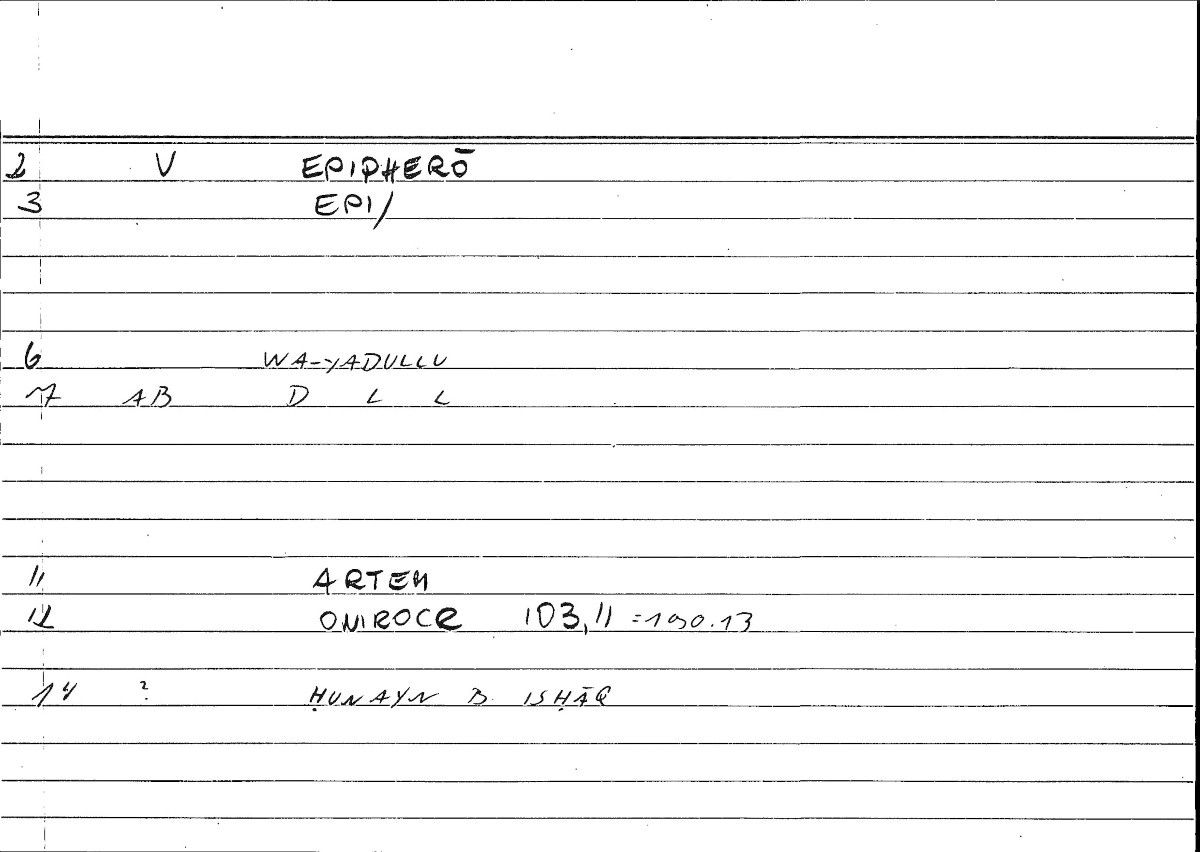 2 V EPIPHERŌ
3 EPI/
6 WA-YADULLU
7 AB D L L
11 ARTEM
12 ONIROCR 103,11 =190.13
14 ? ḤUNAYN B. ISḤĀQ